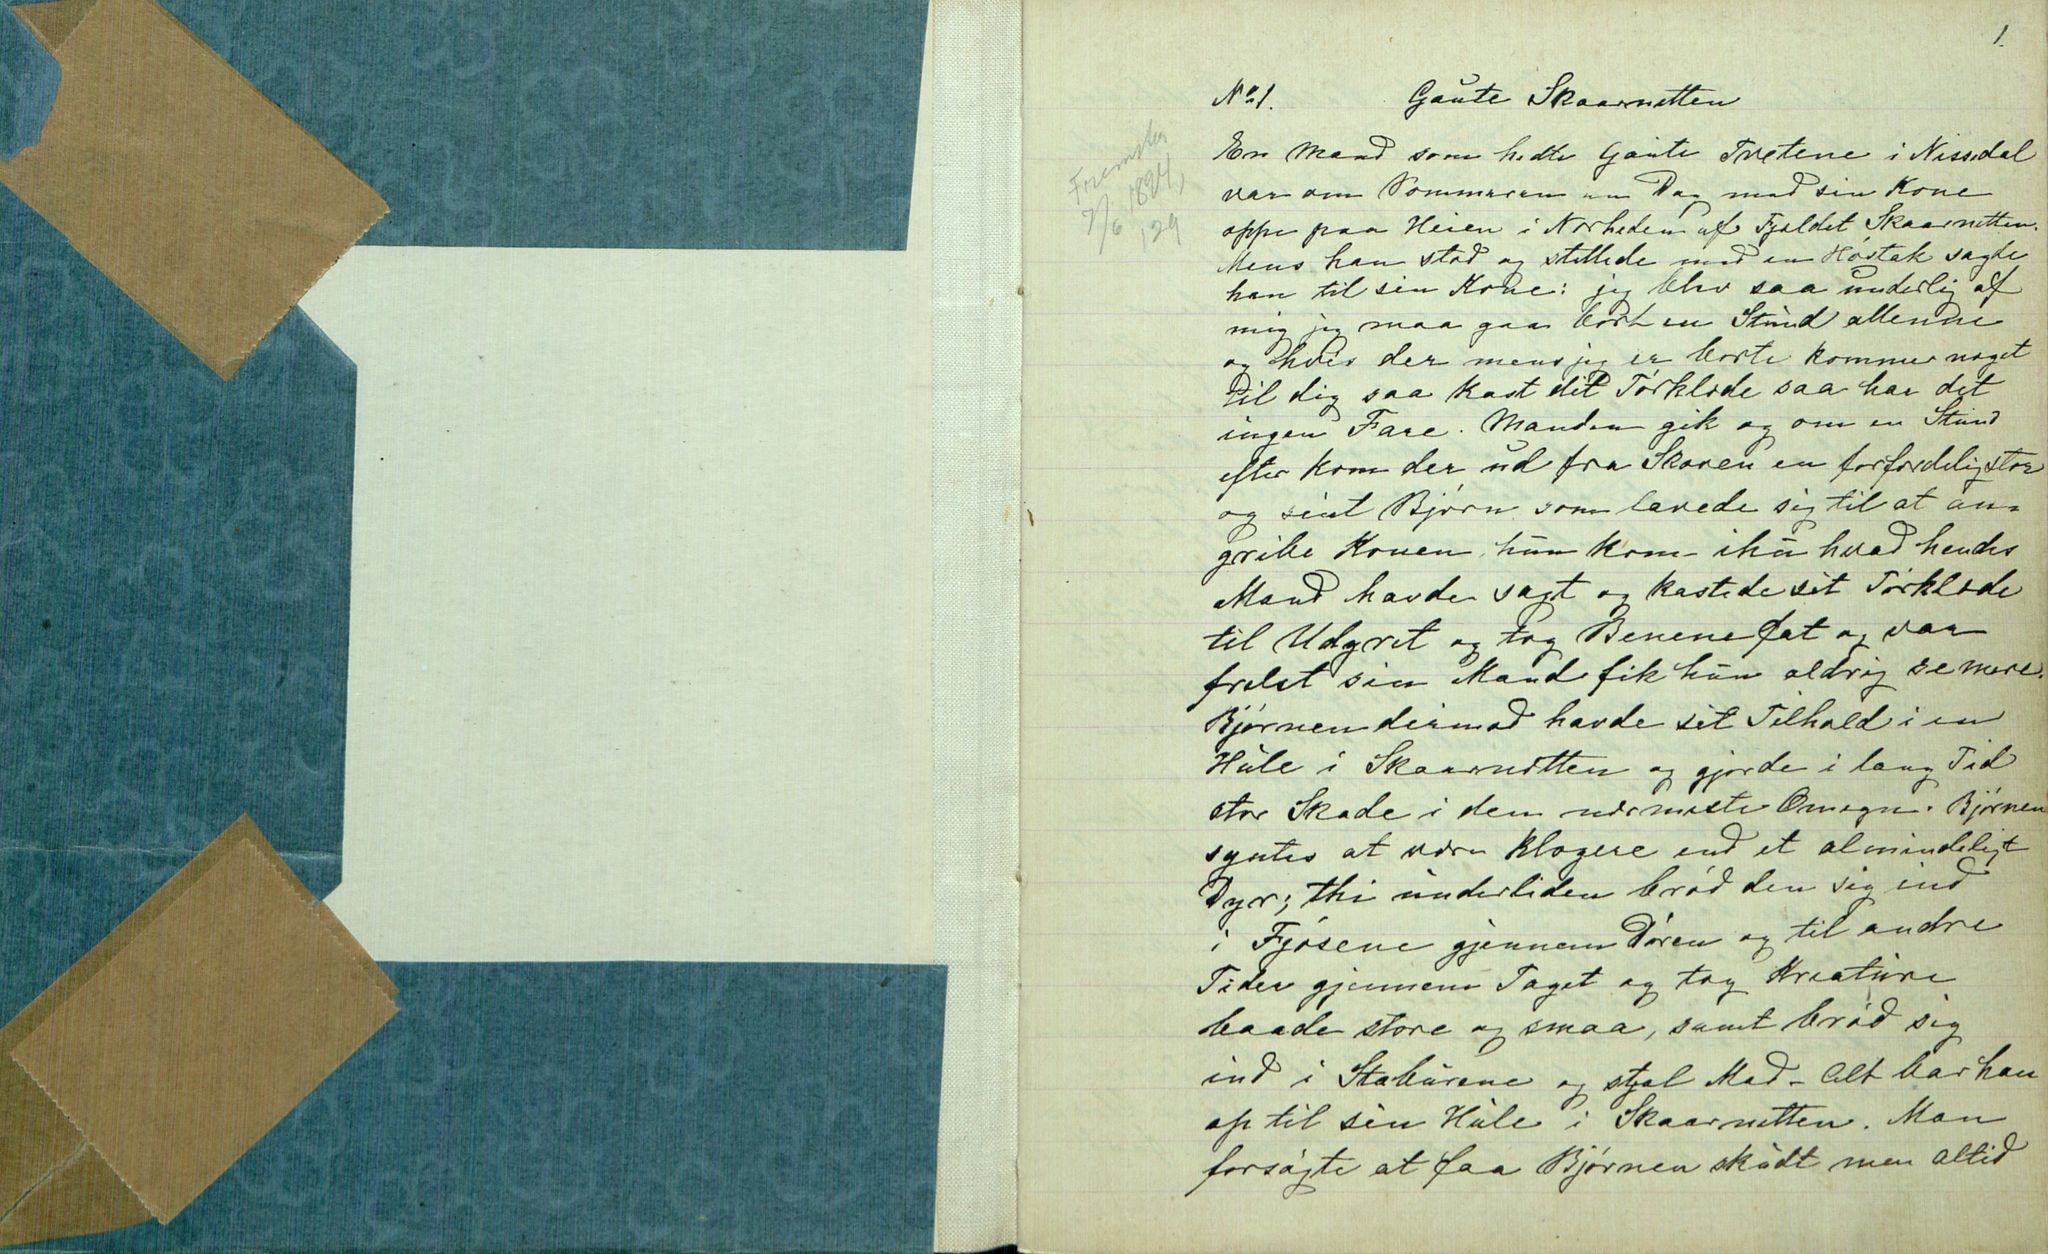 1.
No 1. Gaute Skaarnetten
En Mand som hedte Gaute Tvetene i Nissedal
var om Sommeren en Dag med sin Kone
oppe paa Heien i Nærheden af Fjeldet Skaarnetten.
Mens han stod og stellede med en Høstak sagde
han til sin Kone: jeg blev saa underlig af
mig jeg maa gaa bort en Stund allene
og hvis der mens jeg er borte kommer noget
til dig saa kast dit Tørklæde saa har det
ingen Fare. Manden gik og om en Stund
efter kom der ud fra Skoven en forfærdelig stor
og sint Bjørn som lavede sig til at an=
gribe Konen, hun kom ihu hvad hendes
Mand havde sagt og kastede sit Tørklæde
til Udyret og tog Benene fat og var
frelst sin Mand fik hun aldrig se mere.
Bjørnen derimod havde sit Tilhold i en
Hule i Skaarnetten og gjorde i lang Tid
stor Skade i den nærmeste Omegn. Bjørnen
syntes at være klogere end et almindeligt
Dyr; thi underliden brød den sig ind
i Fjøsene gjennem Døren og til andre
Tider gjennem Taget og tog Kreature
baade store og smaa, samt brød sig
ind i Staburene og stjal Mad - Alt bar han
op til sin Hule i Skaarnetten. Man
forsøgte at faa Bjørnen skudt men altid
7/6 1824,
129